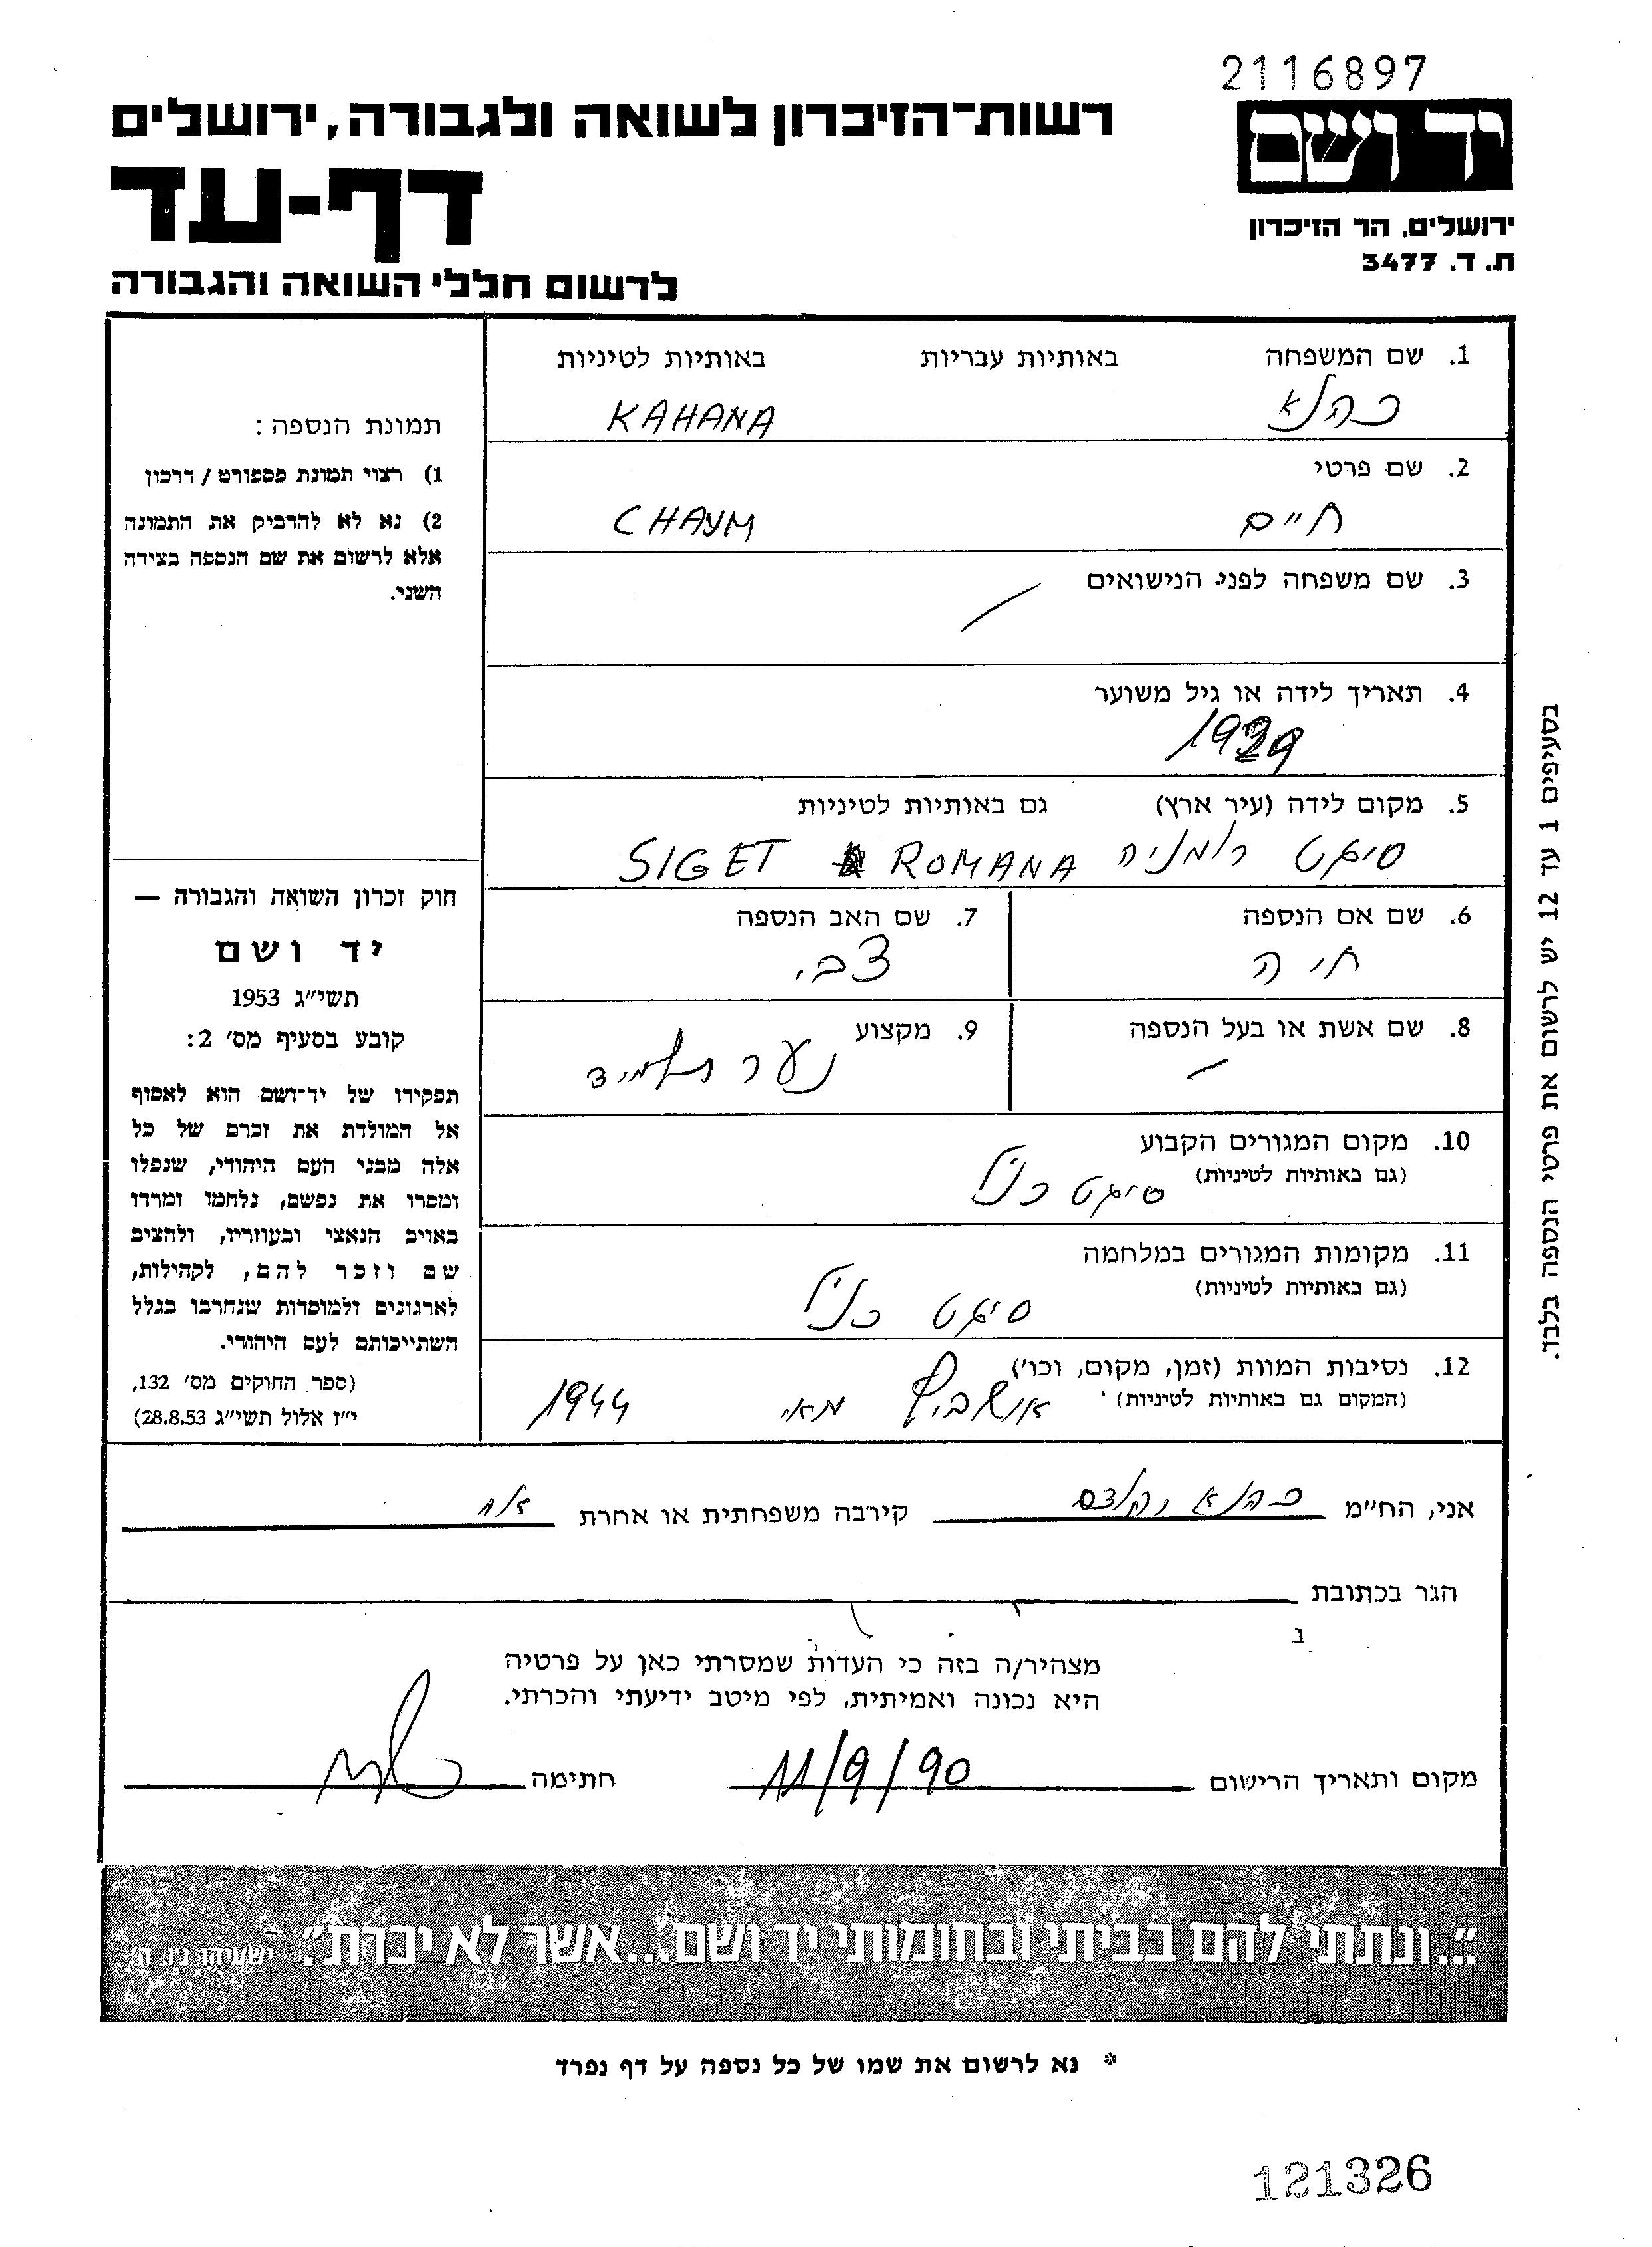 2116897
רשות-הזיכרון לשואה ולגבורה, ירושלים
יד ושם
דף-עד
ירושלים, הר הזיכרון
ת. ד. 3477
לרשום חללי השואה והגבורה
1. שם המשפחה באותיות עבריות באותיות לטיניות
כהנא KAHANA
2. שם פרטי
חיים CHAYM
3. שם משפחה לפני הנישואים
4. תאריך לידה או גיל משוער
1929
5. מקום לידה (עיר ארץ) גם באותיות לטיניות
סיגט רומניה SIGET ROMANA
6. שם אם הנספה 7. שם האב הנספה
חיה צבי
8. שם אשת או בעל הנספה 9. מקצוע
נער תלמיד
10. מקום המגורים הקבוע
(גם באותיות לטיניות) סיגט כנ"ל
11. מקומות המגורים במלחמה
(גם באותיות לטיניות)
סיגט כנ"ל
12. נסיבות המוות (זמן, מקום, וכו')
(המקום גם באותיות לטיניות) אושביץ מאי 1944
תמונת הנספה:
1) רצוי תמונת פספורט / דרכון
2) נא לא להדביק את התמונה
אלא לרשום את שם הנספה בצידה
השני.
חוק זכרון השואה והגבורה —
יד ושם
תשי"ג 1953
קובע בסעיף מס' 2:
תפקידו של יד-ושם הוא לאסוף
אל המולדת את זכרם של כל
אלה מבני העם היהודי, שנפלו
ומסרו את נפשם, נלחמו ומרדו
באויב הנאצי ובעוזריו, ולהציב
שם וזכר להם, לקהילות,
לארגונים ולמוסדות שנחרבו בגלל
השתייכותם לעם היהודי.
(ספר החוקים מס' 132,
י"ז אלול תשי"ג 28.8.53)
בסעיפים 1 עד 12 יש לרשום את פרטי הנספה בלבד.
אני, הח"מ כהנא קירבה משפחתית או אחרת אח
הגר בכתובת
מצהיר/ה בזה כי העדות שמסרתי כאן על פרטיה
היא נכונה ואמיתית, לפי מיטב ידיעתי והכרתי.
מקום ותאריך הרישום 11/9/90 חתימה
"...ונתתי להם בביתי ובחומותי יד ושם...אשר לא יכרת". ישעיהו נ"ו, ה'
* נא לרשום את שמו של כל נספה על דף נפרד
121326